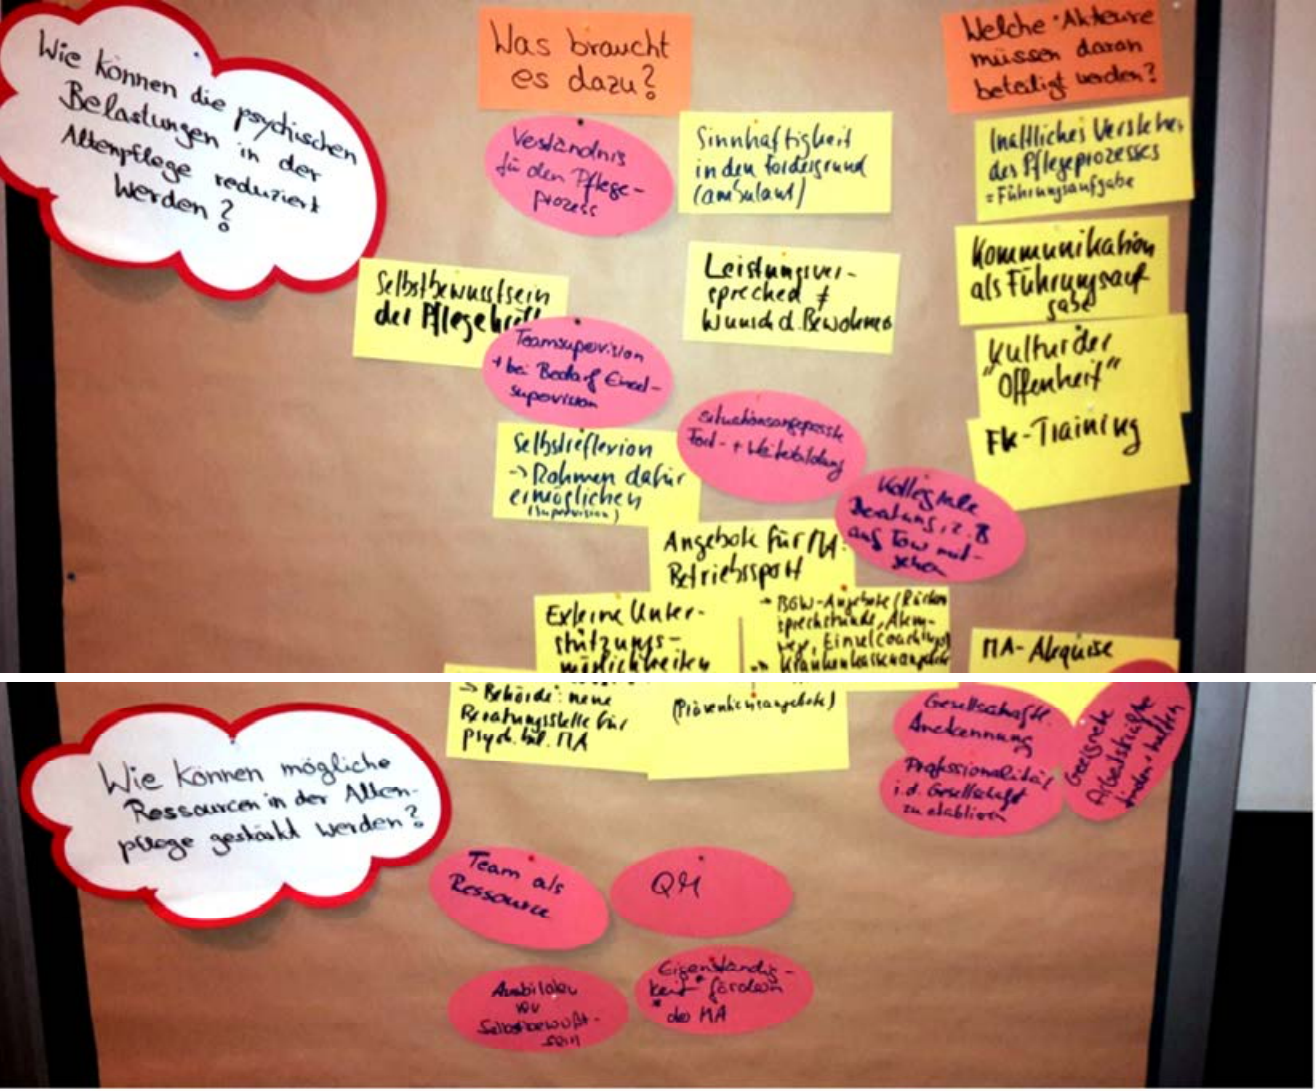 Wie können die psychischen
Belastungen in der
Altenpflege reduziert
werden?
Was braucht
es dazu?
Welche Akteure
müssen daran
beteiligt werden?
Verständnis
für den Pflege-
prozess
Sinnhaftigkeit
in den Vordergrund
(ambulant)
Inaltliches Verstehen
des Pflegeprozesses
= Führungsaufgabe
Selbstbewusstsein
der Pflegekräft
Leistungsver-
sprechen ≠
Wunsch d. Bewohner
Kommunikation
als Führungsauf
gabe
Teamsupervision
+ bei Bedarf Einzel-
supervision
Kultur der
"Offenheit"
FK-Training
Selbstreflexion
-> Rahmen dafür
ermöglichen
(Supervision)
situationsangepasste
Fort- + Weiterbildung
Kollegiale
Beratung, z.B
auf Tour mit-
gehen
Angebote für MA:
Betriebssport
Externe Unter-
stützungs-
möglichkeiten
-> BGW-Angebote (Rücken
sprechstunde,
Einzelcoaching)
-> Krankenkassenangebote
MA-Akquise
-> Behörde: neue
Beratungsstelle für
psych. bel. MA
(Präventionsangebote)
Gesellschaftl.
Anerkennung
Professionalität
i.d. Gesellschaft
zu etablieren
Geeignete
Arbeitskräfte
finden + halten
Wie können mögliche
Ressourcen in der Alten-
pflege gestärkt werden?
Team als
Ressource
QM
Ausbilden
von
Selbstbewußt-
sein
Eigenständig-
keit fördern
der MA